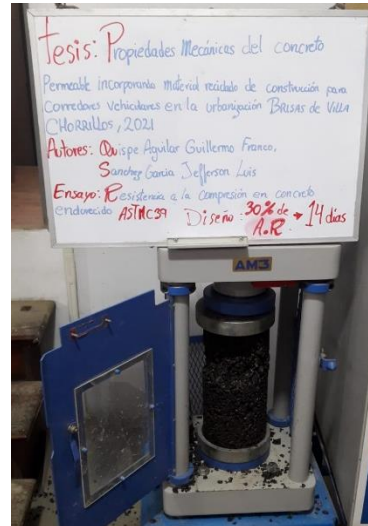 Tesis: Propiedades Mecánicas del concreto
Permeable incorporando material reciclado de construcción para
Corredores vehiculares en la urbanización BRISAS de VILLA
CHORRILLOS, 2021
Autores: Quispe Aguilar Guillermo Franco,
Sanchez Garcia Jefferson Luis
Ensayo: Resistencia a la Compresión en concreto
endurecido ASTM C39 Diseño: 30% de A.R. → 14 días
AM3